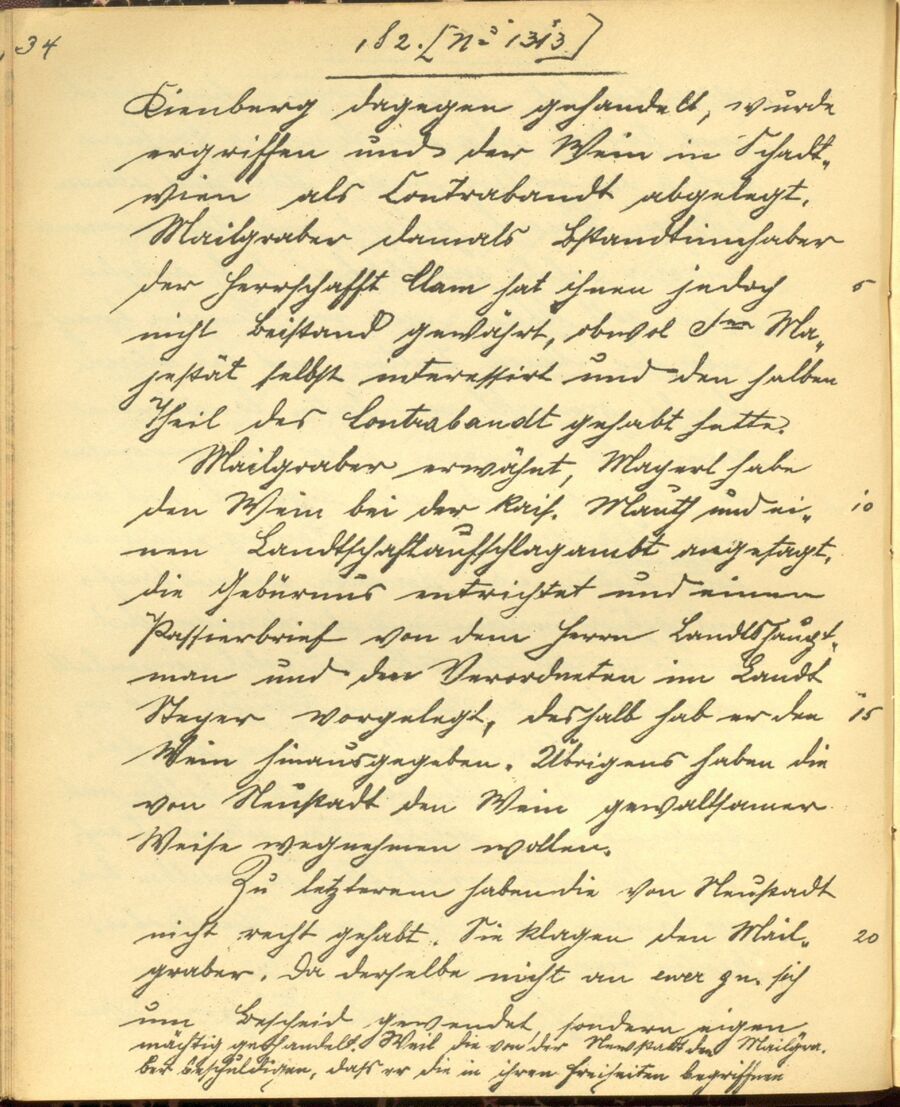 34
182. [No 1313]
Kienberg dagegen gehandelt, wurde
ergriffen und der Wein in Schadt-
wien als Contrabandt abgelegt.
Mailgraber damals Bstandtinnhaber
der Herrschafft Clam hat ihnen jedoch
5
nicht Beistand gewährt, obwol Ma-
jestät selbst interessirt und den halben
Theil des Contrabandt gehabt hette.
Mailgraber erwähnt, Mayerl habe
den Wein bei der kais. Mauth und ei-
10
nen Landtschaftaufschlagambt angesagt,
die Gebürnus entrichtet und einen
Passierbrief von dem Herrn Landtshaupt-
man und den Verordneten im Landt
Steyer vorgelegt, deshalb hab er den
15
Wein hinausgegeben. Übrigens haben die
von Neustadt den Wein gewaltsamer
Weise wegnehmen wollen.
Zu letzterem haben die von Neustadt
nicht recht gehabt. Sie klagen den Mail-
20
graber, da derselbe nicht an ewer gn. sich
um Bescheid gewendet, sondern eigen
mächtig gehandelt. Weil die von der Newstatt den Mailgra-
ber beschuldigen, dass er die in ihren Freiheiten begriffnen